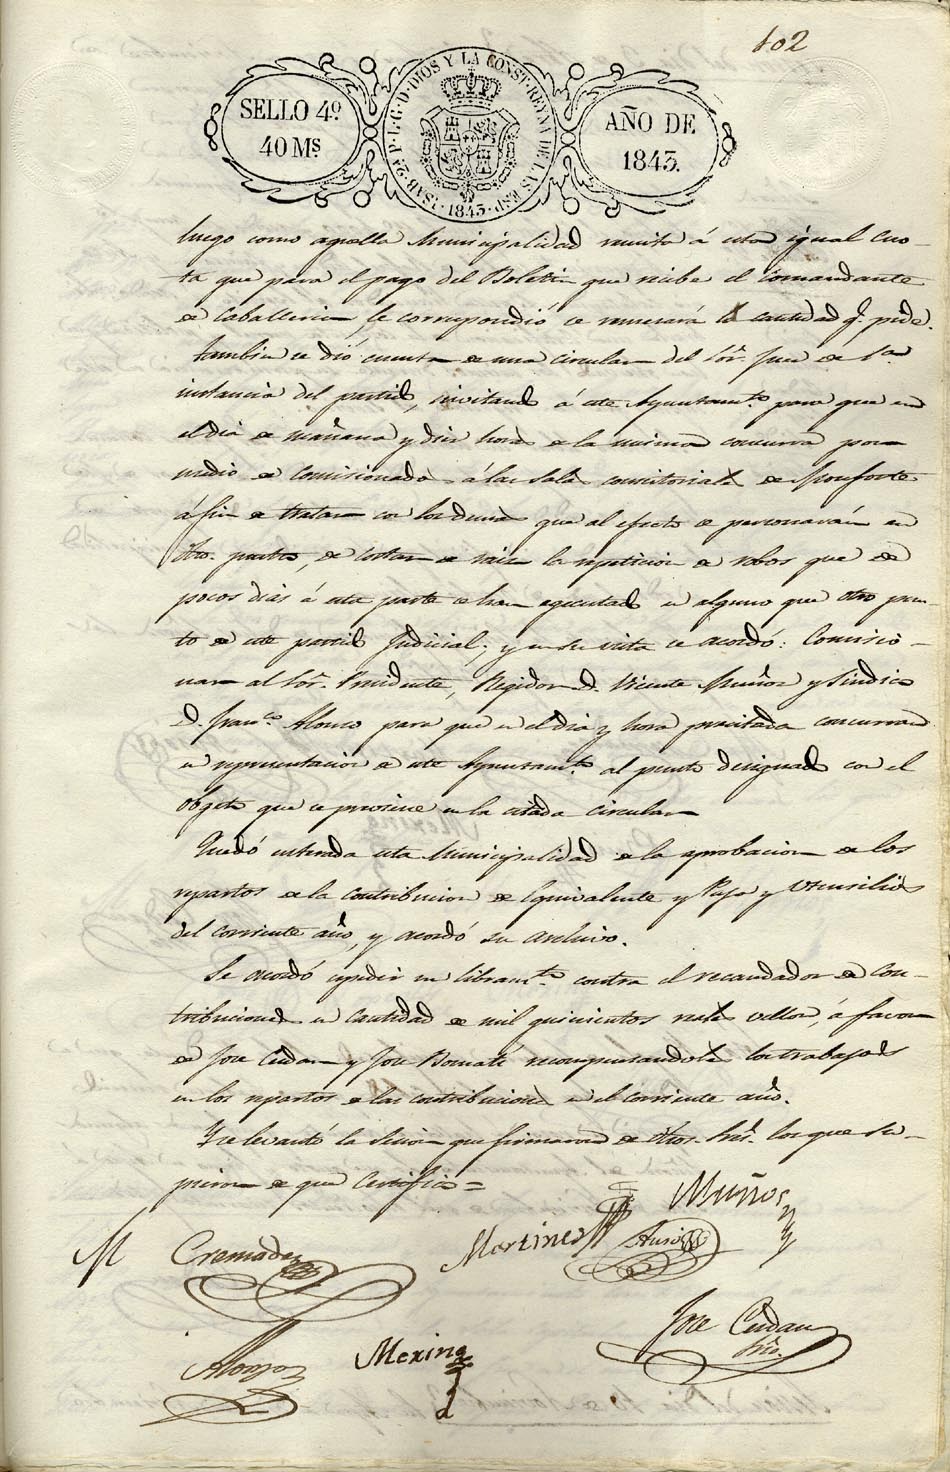 102
SELLO 4º
40 Ms.
ISAB. 2ª P. L. G. D. DIOS Y LA CONST. REYNA DE LAS ESP.
1843.
AÑO DE
1843.
luego como aquella Municipalidad remita á esta igual cuo-
ta que para el pago del Boletin que recibe el Comandante
de Caballeria le correspondió se remesará la cantidad q.e pide.
Tambien se dió cuenta de una circular del Sor. Juez de 1ª
instancia del partido, invitando á este Ayuntam.to para que en
el dia de mañana y diez hora de la misma concurra por
medio de Comisionado á las Salas consistoriales de Monforte
á fin de tratar con los demas que al efecto se personarán en
dho. punto, de cortar de raiz la repeticion de robos que de
pocos dias á esta parte se han egecutado en alguno que otro pun-
to de este partido judicial; y en su vista se acordó: Comisio-
nar al Sor. Presidente, Regidor D. Vicente Muñoz y Sindico
D. Fran.co Alonso para que en el dia y hora precitada concurran
en representacion de este Ayuntam.to al punto designado con el
obgeto que se previene en la citada circular
Quedó enterada esta Municipalidad de la aprobacion de los
repartos de la contribucion de Equivalente y Paja y Utensilios
del corriente año, y acordó su archivo.
Se acordó expedir un libram.to contra el recaudador de Con-
tribuciones en cantidad de mil quinientos reales vellon, á favor
de Jose Cerdan y Jose Bernabé recompensandoles los trabajos
en los repartos de las contribuciones en el corriente año.
Y se levantó la Sesion que firmaron de dhos. Sres. los que su-
pieron de que Certifico =
Muños
Cremades
Martines
Alonso
Mexina
Jose Cerdan
Srio.